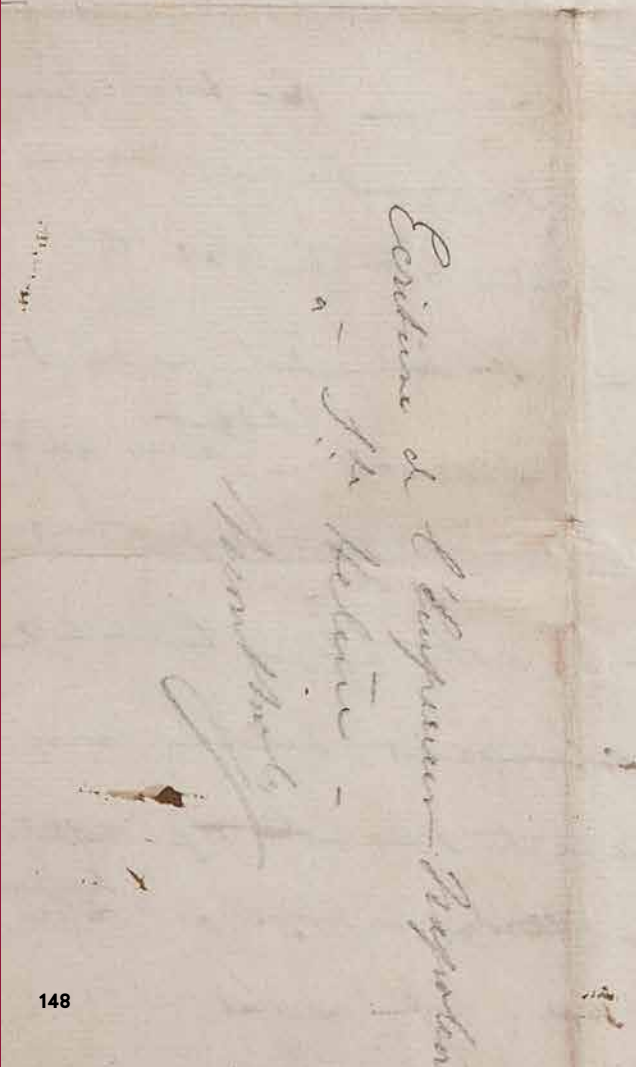 Ecriture de l'Empereur Napoléon
à - Ste Helène -
148